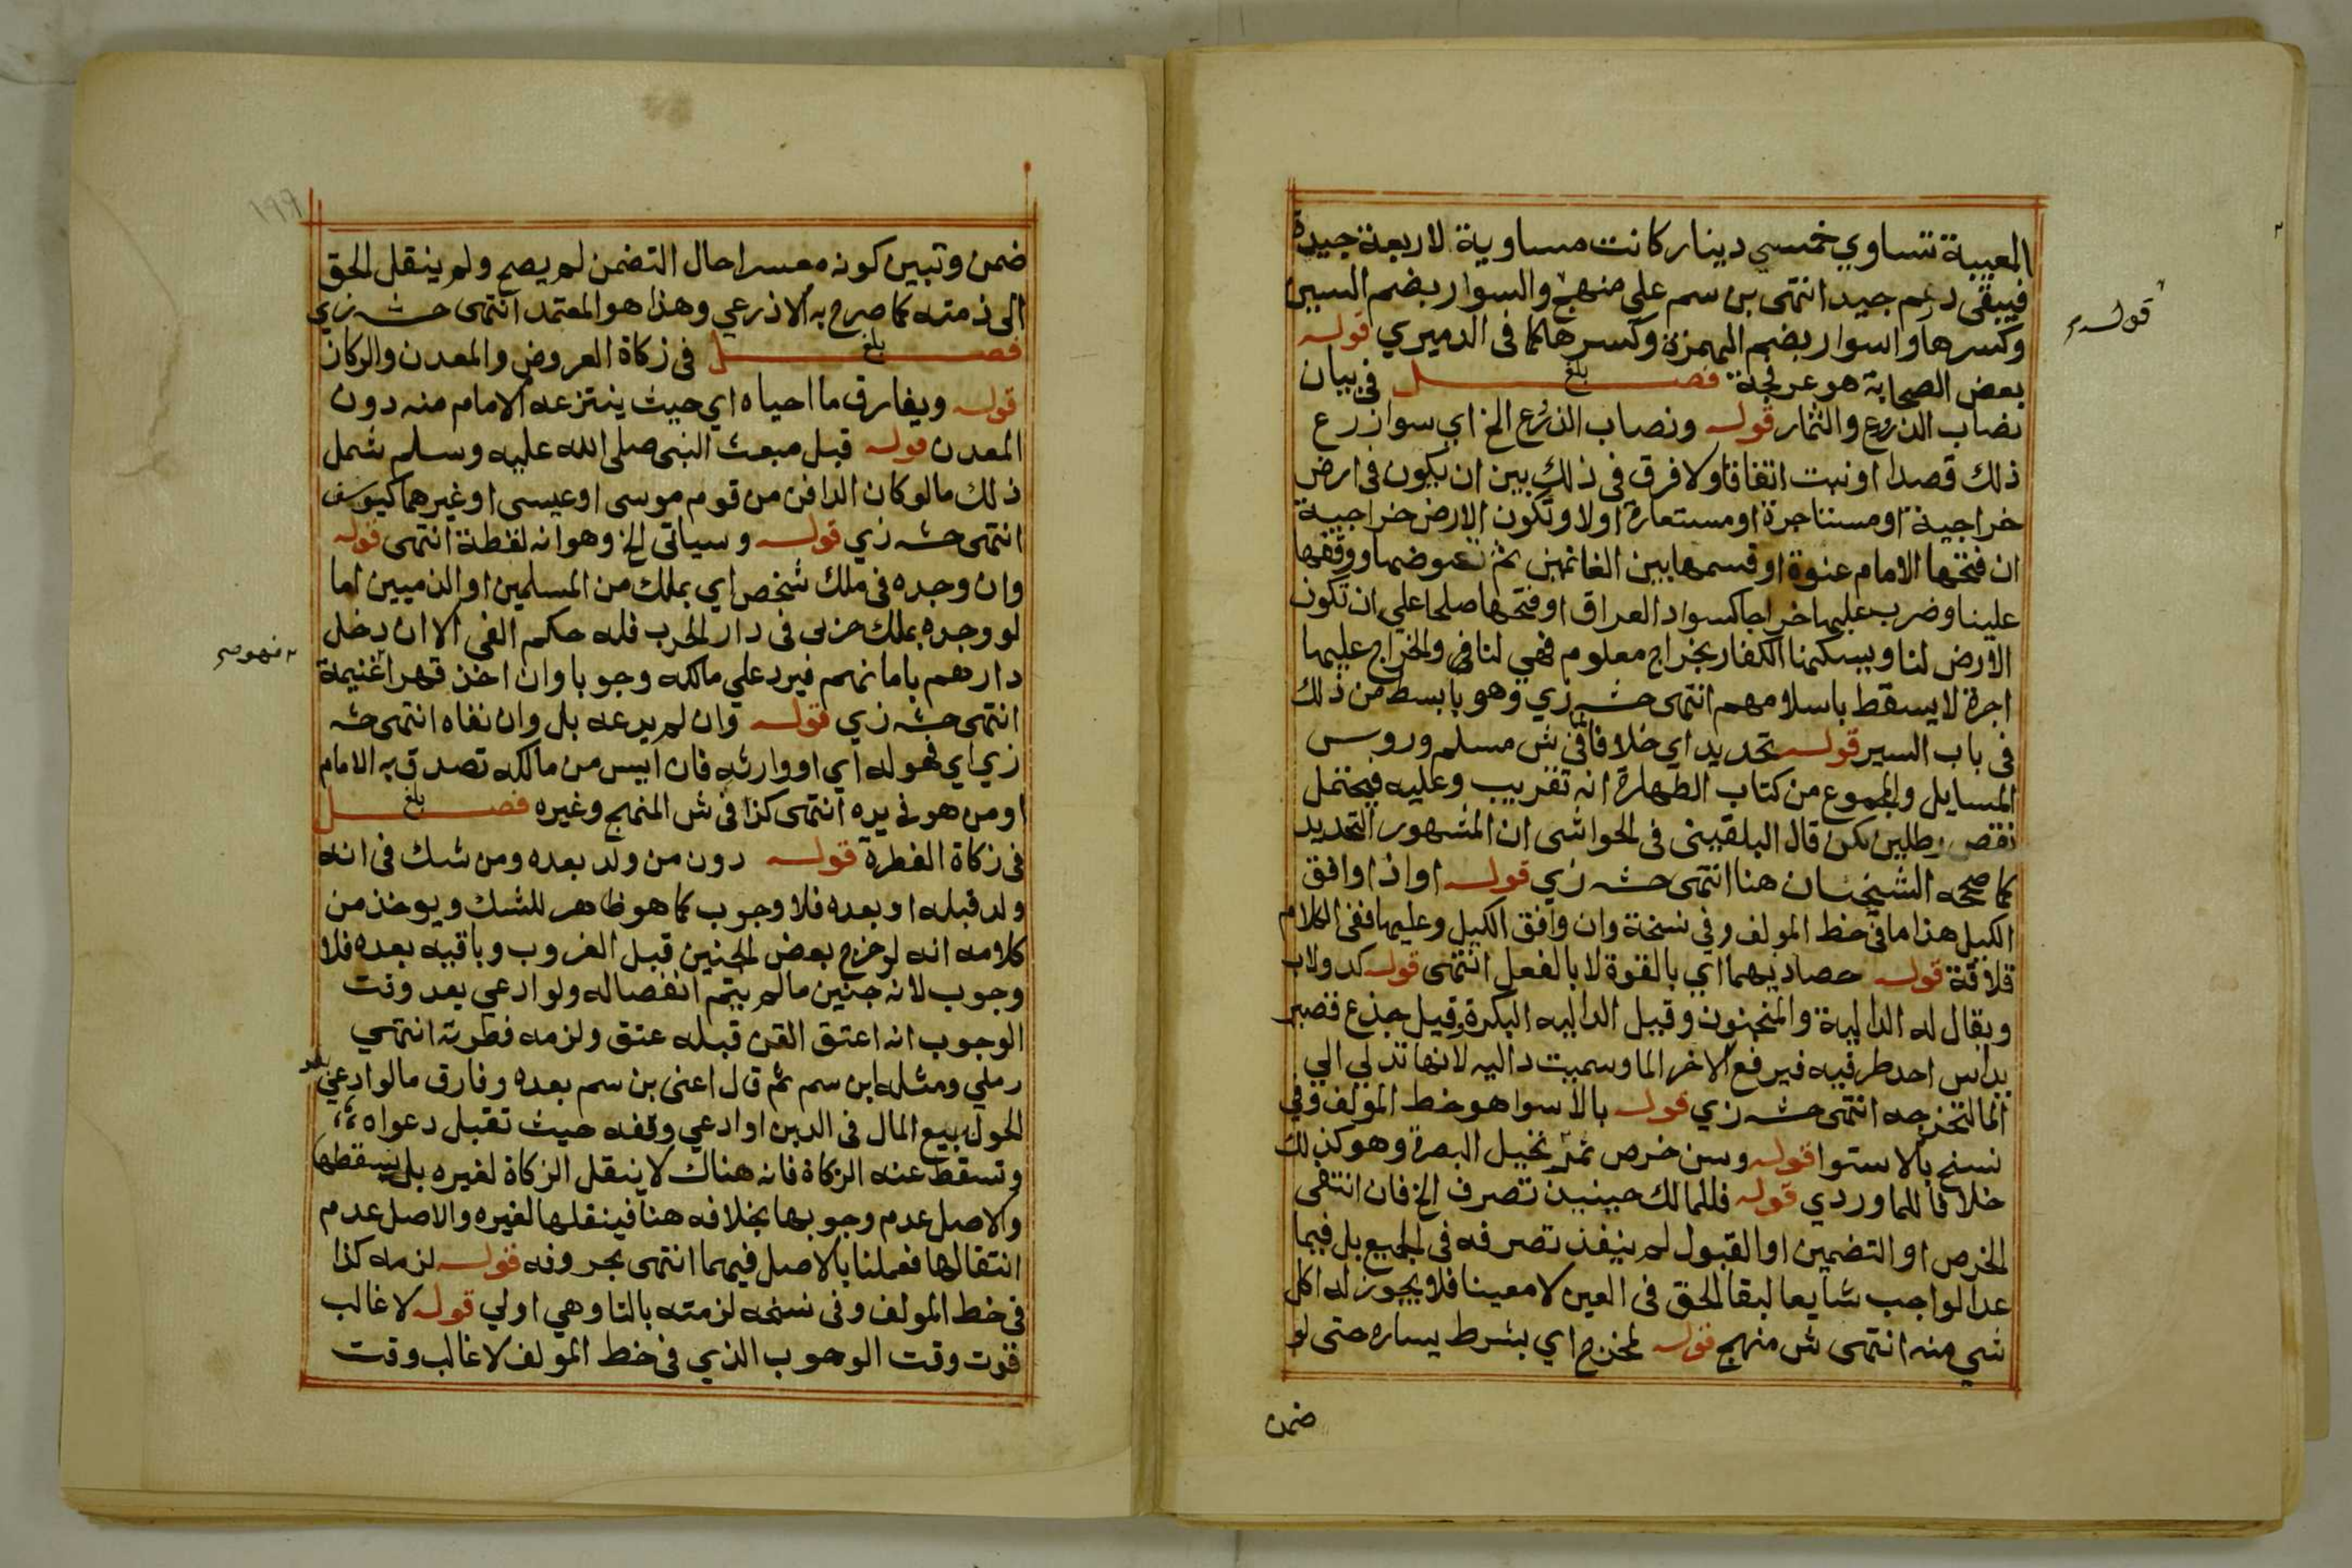 المعيبة تساوي خمسي دينار كانت مساوية لاربعة جيدة
فيبقى درهم جيد انتهى بن سم على منهج والسوار بضم السين
وكسرها واسوار بضم الهمزة وكسرها كما فى الدميري قوله
قوله
بعض الصحابة هو عرفجة فصل بلغ فى بيان
نصاب الزرع والثمار قوله ونصاب الزرع الخ اي سوا زرع
ذلك قصدا او نبت اتفاقا ولا فرق فى ذلك بين ان يكون فى ارض
خراجية او مستاجرة او مستعارة اولا وتكون الارض خراجية
ان فتحها الامام عنوة او قسمها بين الغانمين ثم تعوضها ووقفها
علينا وضرب عليها خراجا كسواد العراق او فتحها صلحا علي ان تكون
الارض لنا ويسكنها الكفار بخراج معلوم فهي لنا فئ والخراج عليها
اجرة لا يسقط باسلامهم انتهى حشـ زي وهو بابسط من ذلك
فى باب السير قوله تحديد اي خلافا لما فى ش مسلم وروس
المسايل والمجموع من كتاب الطهارة انه تقريب وعليه فيحتمل
نقص رطلين لكن قال البلقينى فى الحواشى ان المشهور التحديد
كما صححه الشيخان هنا انتهى حشـ زي قوله او اذا وافق
الكيل هذا ما فى خط المولف وفى نسخة وان وافق الكيل وعليها ففى الكلام
قلاقة قوله حصاديهما اي بالقوة لا بالفعل انتهى قوله كدولاب
ويقال له الدالية والمنجنون وقيل الداليه البكرة وقيل جذع قصير
يداس احد طرفيه فيرفع الاخر الما وسميت داليه لانها تدلي الي
الما لتخرجه انتهى حشـ زي قوله بالاسوا هو خط المولف وفي
نسخ بالاستوا قوله وسن خرص ثمر نخيل البصرة وهو كذلك
خلافا للماوردي قوله فللمالك حينيذ تصرف الخ فان انتفى
الخرص او التضمين او القبول لم ينفذ تصرفه فى الجميع بل فيما
عدا الواجب شايعا لبقا الحق فى العين لا معينا فلا يجوز له اكل
شي منه انتهى ش منهج قوله لمخرج اي بشرط يساره حتى لو
ضمن
ضمن وتبين كونه معسرا حال التضمن لم يصح ولم ينقل الحق
الى ذمته كما صرح به الاذرعي وهذا هو المعتمد انتهى حشـ زي
فصل بلغ فى زكاة العروض والمعدن والركاز
قوله ويفارق ما احياه اي حيث ينتزعه الامام منه دون
المعدن قوله قبل مبعث النبى صلى الله عليه وسلم شمل
ذلك ما لو كان الدافن من قوم موسى او عيسى او غيرهما كيوسف
انتهى حشـ زي قوله وسياتى الخ وهو انه لقطة انتهى قوله
وان وجده فى ملك شخص اي بملك من المسلمين او الذميين اما
لو وجده بملك حربى فى دار الحرب فله حكم الفى الا ان دخل
دارهم بامانهم فيرد علي مالكه وجوبا وان اخذ قهرا غنيمة
فهو
انتهى حشـ زي قوله وان لم يدعه بل وان نفاه انتهى حشـ
زي اي فهو له اي او وارثه فان ايس من مالكه تصدق به الامام
او من هو فى يده انتهى كذا فى ش المنهج وغيره فصل بلغ
فى زكاة الفطرة قوله دون من ولد بعده ومن شك فى انه
ولد قبله او بعده فلا وجوب كما هو ظاهر للشك ويوخذ من
كلامه انه لو خرج بعض الجنين قبل الغروب وباقيه بعده فلا
وجوب لانه جنين ما لم يتم انفصاله ولو ادعي بعد وقت
الوجوب انه اعتق القن قبله عتق ولزمه فطرته انتهي
رملي ومثله ابن سم ثم قال اعنى بن سم بعده وفارق ما لو ادعي بعد
الحول بيع المال فى الدين او ادعي وقفه حيث تقبل دعواه
وتسقط عنه الزكاة فانه هناك لا ينقل الزكاة لغيره بل يسقطها
والاصل عدم وجوبها بخلافه هنا فينقلها لغيره والاصل عدم
انتقالها فعملنا بالاصل فيهما انتهى بحروفه قوله لزمه كذا
فى خط المولف وفى نسخه لزمته بالتا وهي اولي قوله لا غالب
قوت وقت الوجوب الذي فى خط المولف لا غالب وقت